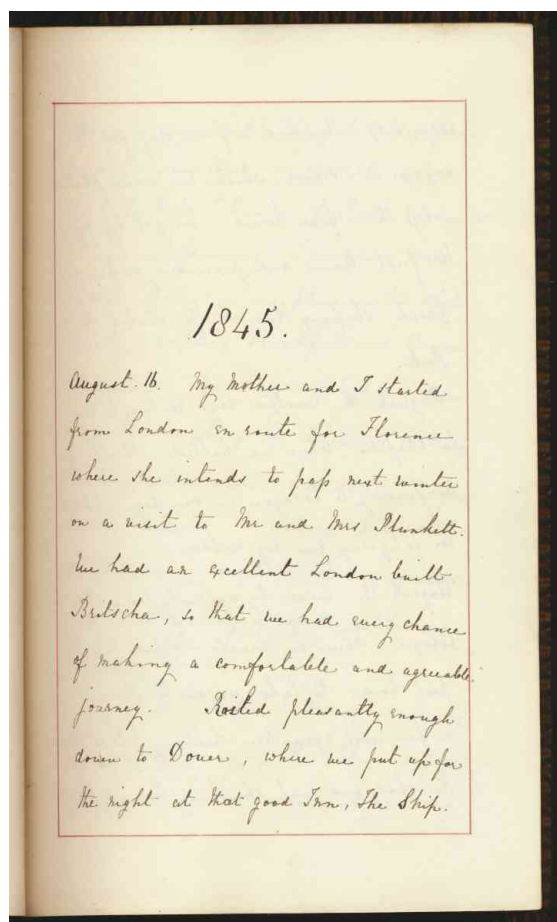 1845.
August. 16. My Mother and I started
from London en route for Florence
where she intends to pass next winter
on a visit to Mr and Mrs Plunkett.
We had an excellent London built
Britscha, so that we had every chance
of making a comfortable and agreeable
journey. Railed pleasantly enough
down to Dover, where we put up for
the night at that good Inn, The Ship.